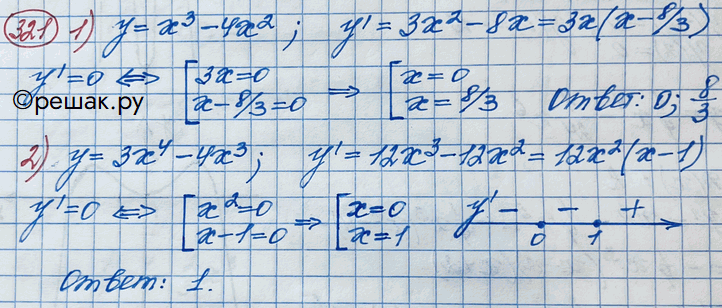 321 1) y = x³ - 4x² ; y' = 3x² - 8x = 3x(x - 8/3)
y' = 0 ⟺ [ 3x = 0 ⟹ [ x = 0
x - 8/3 = 0 x = 8/3 Ответ: 0; 8/3
@решак.ру
2) y = 3x⁴ - 4x³ ; y' = 12x³ - 12x² = 12x²(x - 1)
y' = 0 ⟺ [ x² = 0 ⟹ [ x = 0 y' - - +
x - 1 = 0 x = 1 0 1
Ответ: 1.